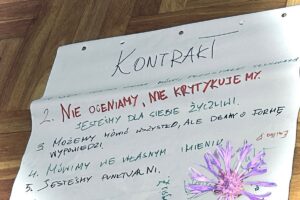 KONTRAKT
2. NIE OCENIAMY, NIE KRYTYKUJEMY.
JESTEŚMY DLA SIEBIE ŻYCZLIWI.
3. MOŻEMY MÓWIĆ WSZYSTKO, ALE DBAMY O FORMĘ
WYPOWIEDZI
4. MÓWIMY WE WŁASNYM IMIENIU
5. JESTEŚMY PUNKTUALNI.